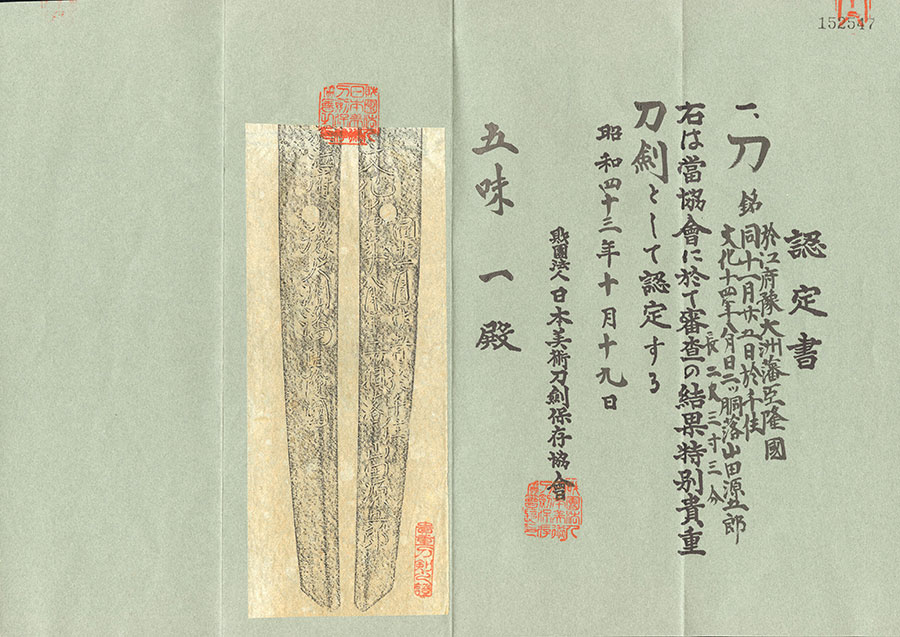 152547
認定書
一、刀
銘
於江府豫大洲藩臣隆國
同十一月廿五日於千住
文化十四年八月日二ッ胴落山田源五郎
長二尺三寸三分
右は當協會に於て審査の結果特別貴重
刀劍として認定する
昭和四十三年十月十九日
財團法人日本美術刀劍保存協會
五味一殿